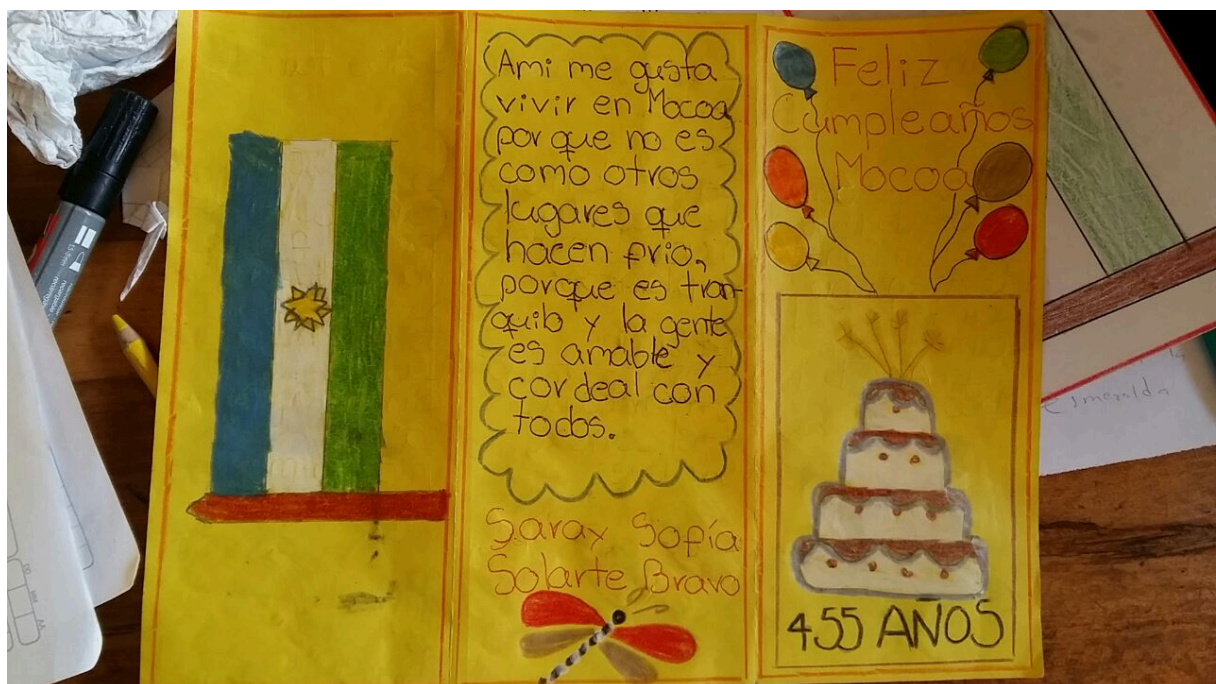 Ami me gusta
vivir en Mocoa
por que no es
como otros
lugares que
hacen frio,
porque es tran-
quilo y la gente
es amable y
cordeal con
todos.
Saray Sofía
Solarte Bravo
Feliz
Cumpleaños
Mocoa
455 AÑOS
Esmeralda